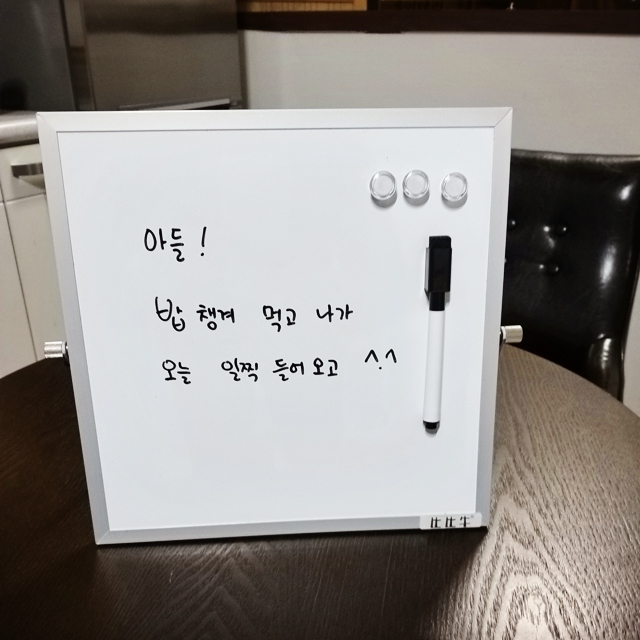 아들!
밥 챙겨 먹고 나가
오늘 일찍 들어오고 ^.^